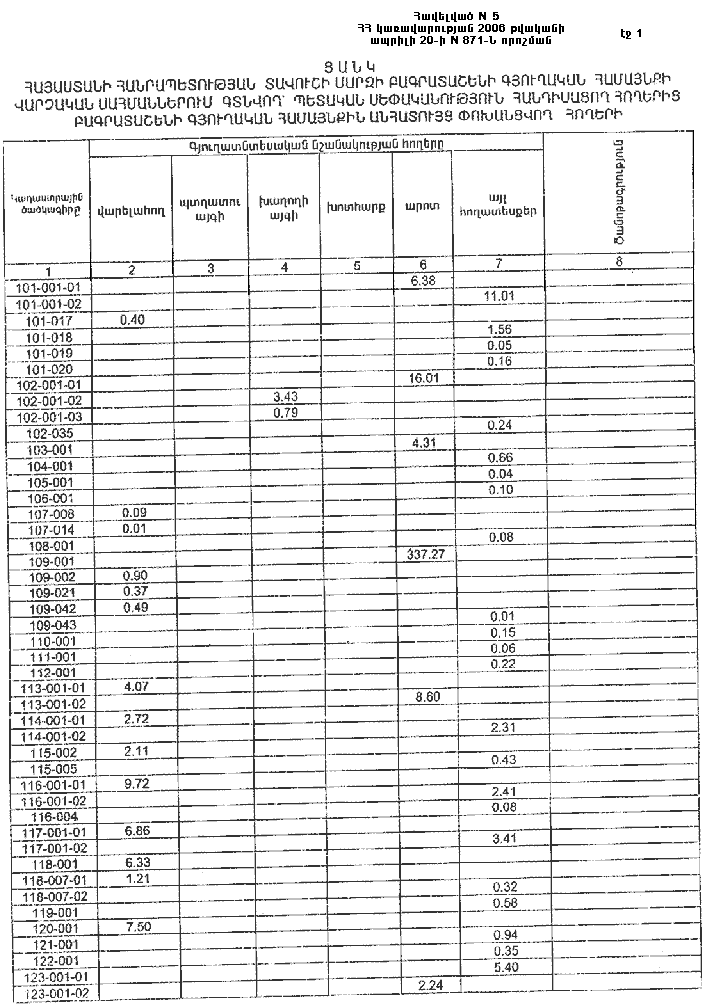 Հավելված N 5
ՀՀ կառավարության 2006 թվականի
ապրիլի 20-ի N 871-Ն որոշման
էջ 1
Ց Ա Ն Կ
ՀԱՅԱՍՏԱՆԻ ՀԱՆՐԱՊԵՏՈՒԹՅԱՆ ՏԱՎՈՒՇԻ ՄԱՐԶԻ ԲԱԳՐԱՏԱՇԵՆԻ ԳՅՈՒՂԱԿԱՆ ՀԱՄԱՅՆՔԻ
ՎԱՐՉԱԿԱՆ ՍԱՀՄԱՆՆԵՐՈՒՄ ԳՏՆՎՈՂ՝ ՊԵՏԱԿԱՆ ՍԵՓԱԿԱՆՈՒԹՅՈՒՆ ՀԱՆԴԻՍԱՑՈՂ ՀՈՂԵՐԻՑ
ԲԱԳՐԱՏԱՇԵՆԻ ԳՅՈՒՂԱԿԱՆ ՀԱՄԱՅՆՔԻՆ ԱՆՀԱՏՈՒՅՑ ՓՈԽԱՆՑՎՈՂ ՀՈՂԵՐԻ
Գյուղատնտեսական նշանակության հողերը
Կադաստրային ծածկագիրը վարելահող պտղատու այգի խաղողի այգի խոտհարք արոտ այլ հողատեսքեր Ծանոթագրություն
1 2 3 4 5 6 7 8
101-001-01 6.38
101-001-02 11.01
101-017 0.40
101-018 1.56
101-019 0.05
101-020 0.16
102-001-01 16.01
102-001-02 3.43
102-001-03 0.79
102-035 0.24
103-001 4.31
104-001 0.66
105-001 0.04
106-001 0.10
107-008 0.09
107-014 0.01
108-001 0.08
109-001 337.27
109-002 0.90
109-021 0.37
109-042 0.49
109-043 0.01
110-001 0.15
111-001 0.06
112-001 0.22
113-001-01 4.07
113-001-02 8.60
114-001-01 2.72
114-001-02 2.31
115-002 2.11
115-005 0.43
116-001-01 9.72
116-001-02 2.41
116-004 0.08
117-001-01 6.86
117-001-02 3.41
118-001 6.33
118-007-01 1.21
118-007-02 0.32
119-001 0.58
120-001 7.50
121-001 0.94
122-001 0.35
123-001-01 5.40
123-001-02 2.24